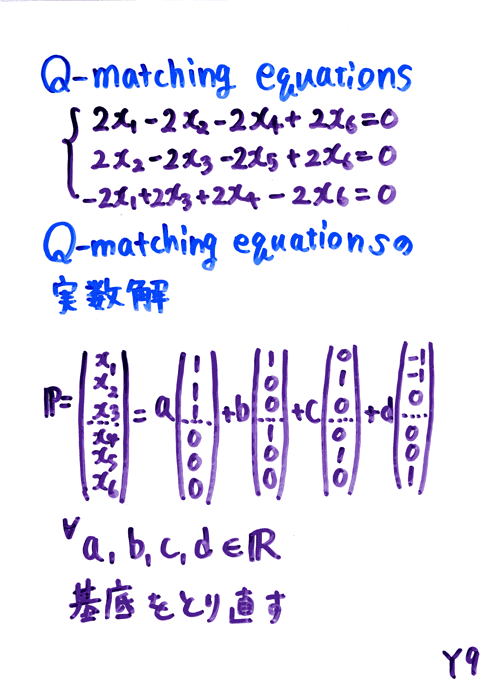 Q-matching equations
2x₁-2x₂-2x₄+2x₆=0
2x₂-2x₃-2x₅+2x₆=0
-2x₁+2x₃+2x₄-2x₆=0
Q-matching equationsの
実数解
ℙ=(x₁ x₂ x₃ x₄ x₅ x₆)=a(1 1 1 0 0 0)+b(1 0 0 1 0 0)+c(0 1 0 0 1 0)+d(-1 -1 0 0 0 1)
∀a,b,c,d∈ℝ
基底をとり直す
Y9